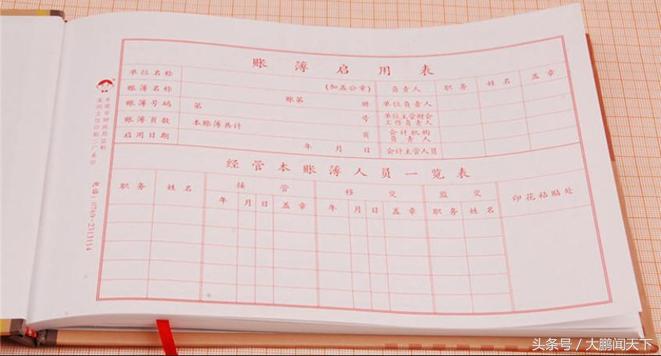 账簿启用表
单位名称 (加盖公章) 负责人 职务 姓名 盖章
账簿名称
账簿号码 第 账第 册 单位负责人
账簿页数 本账簿共计 号 单位主管财会工作负责人
启用日期 页 会计机构负责人
年 月 日 会计主管人员
经管本账簿人员一览表
职务 姓名 接管 移交 监交 印花粘贴处
年 月 日 盖章 年 月 日 盖章 职务 姓名
头条号 / 大鹏闻天下